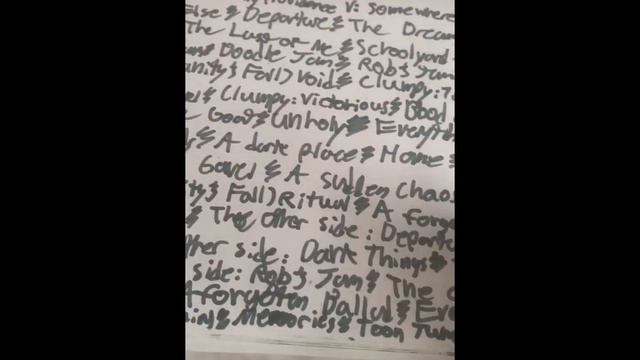 V: Somewhere
Else & Departure & The Dream
The Loss of Me & Schoolyard
Doodle Jam & Rob's Jam
Fall) Void & Clumpy:
& Clumpy: Victorious & Good
Good & Unholy & Everyth
& A dark place & Home &
Gavel & A sudden Chaos
Fall) Ritual & A forgo
& The other side: Departu
other side: Dark Things &
side: Rob's Jam & The
A forgotten Ballad & Eve
& Memories & Toon Tum